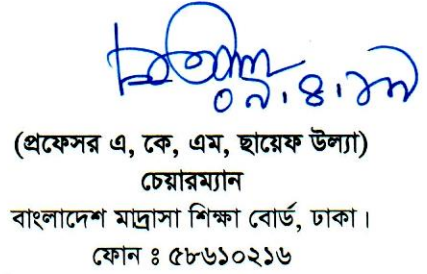 (প্রফেসর এ, কে, এম, ছায়েফ উল্যা)
চেয়ারম্যান
বাংলাদেশ মাদ্রাসা শিক্ষা বোর্ড, ঢাকা।
ফোন ঃ ৫৮৬১০২১৬